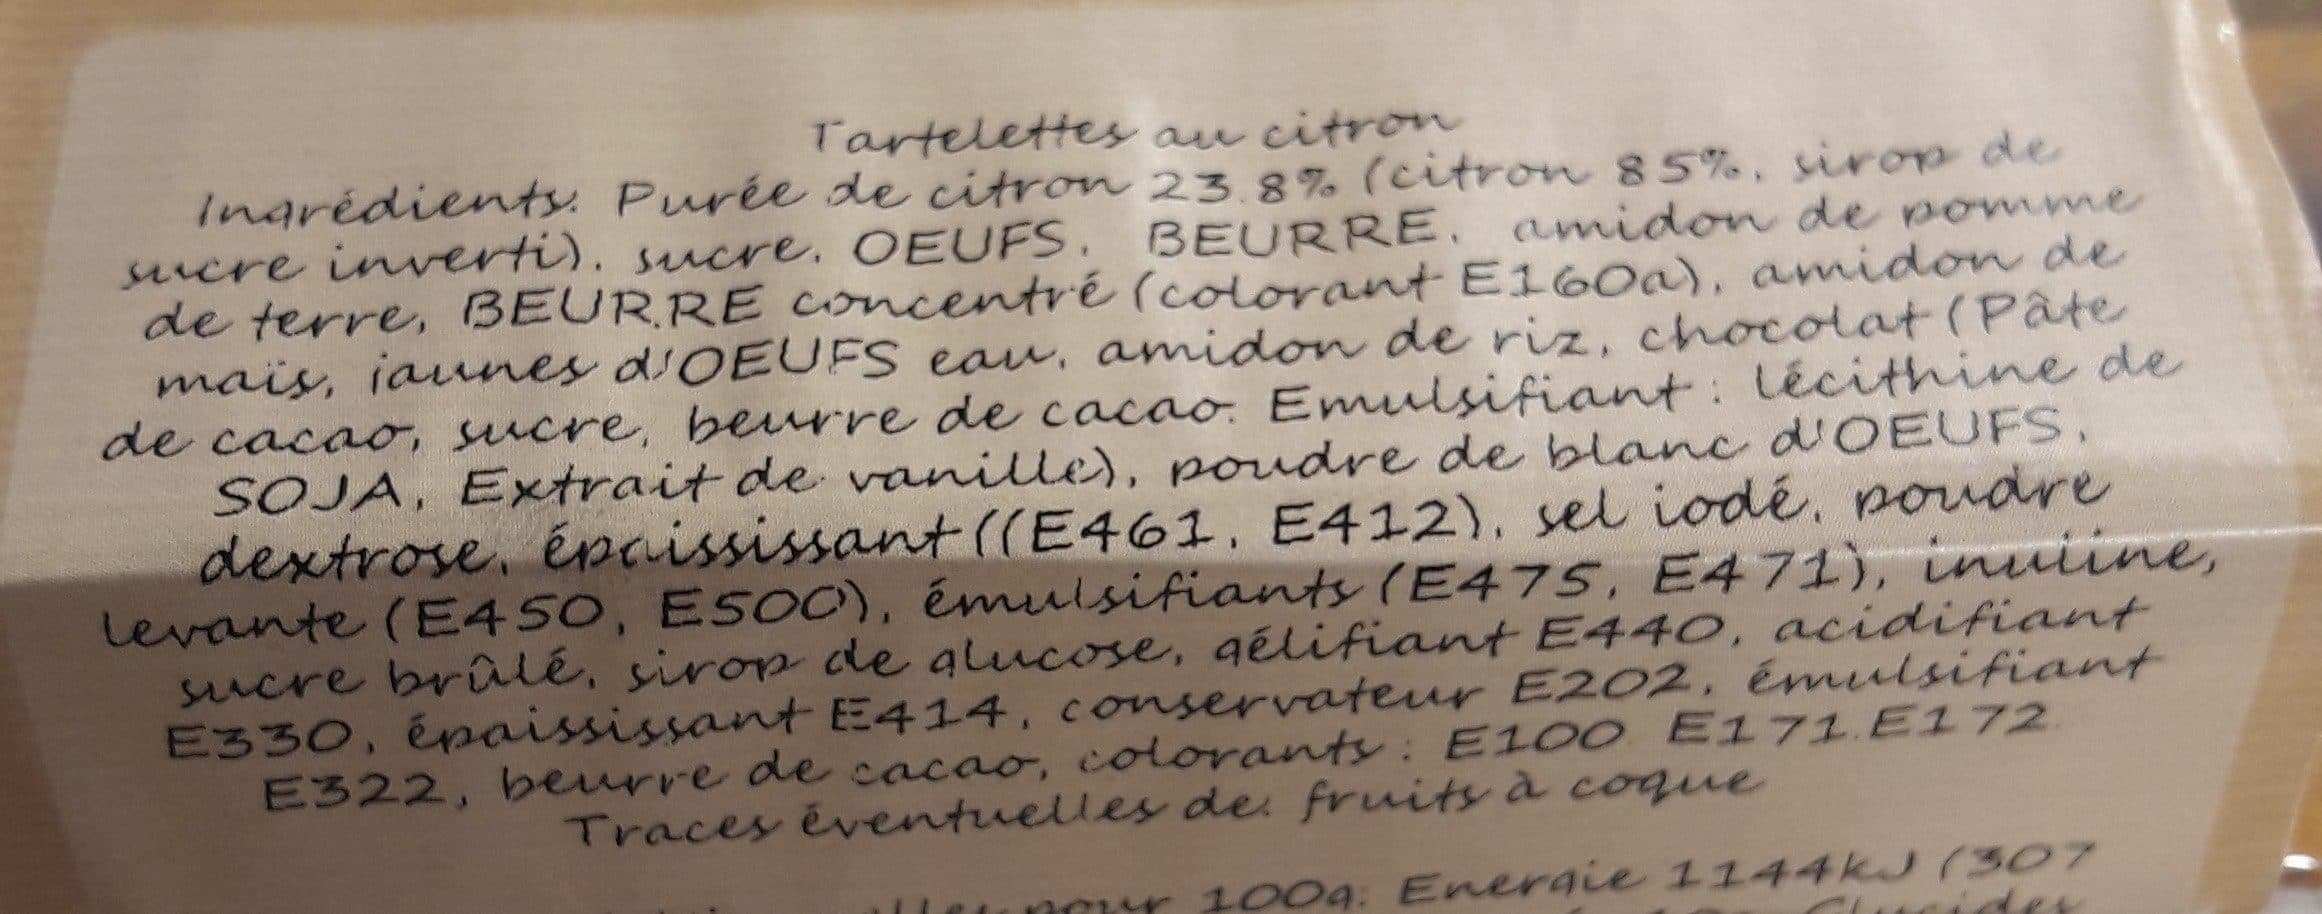 Tartelettes au citron
Ingrédients: Purée de citron 23.8% (citron 85%, sirop de
sucre inverti), sucre, OEUFS, BEURRE, amidon de pomme
de terre, BEURRE concentré (colorant E160a), amidon de
maïs, jaunes d'OEUFS eau, amidon de riz, chocolat (Pâte
de cacao, sucre, beurre de cacao. Emulsifiant : lécithine de
SOJA, Extrait de vanille), poudre de blanc d'OEUFS,
dextrose, épaississant ((E461, E412), sel iodé, poudre
levante (E450, E500), émulsifiants (E475, E471), inuline,
sucre brûlé, sirop de glucose, gélifiant E440, acidifiant
E330, épaississant E414, conservateur E202, émulsifiant
E322, beurre de cacao, colorants : E100 E171.E172
Traces éventuelles de: fruits à coque
pour 100g: Energie 1144kJ (307
Glucides